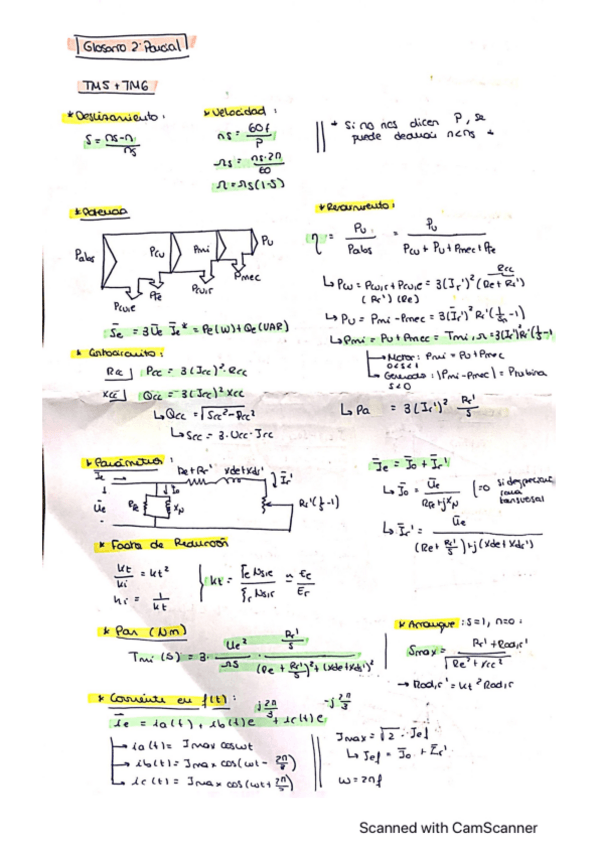 Glosario 2º Parcial
TM5 + TM6
* Deslizamiento:
S = ns-n / ns
* Velocidad:
ns = 60f / P
Ωs = ns·2π / 60
Ω = Ωs(1-S)
* Si no nos dicen P, se
puede deducir n<ns *
* Potencia
Pabs
Pcue
Pcu
Pfe
Pmi
Pcur
Pmec
Pu
Se = 3Ue Ie* = Pe(W) + Qe(VAR)
* Rendimiento:
η = Pu / Pabs = Pu / Pcu + Pu + Pmec + Pfe
↳ Pcu = Pcur + Pcue = 3(Ir')² (Re+Rr')
Rcc
(Rr') (Re)
↳ Pu = Pmi - Pmec = 3(Ir')² Rr'(1/s -1)
↳ Pmi = Pu + Pmec = Tmi·Ω = 3(Ir')² Rr'(1/s -1)
→ Motor: Pmi = Pu + Pmec
0<s<1
→ Generador: |Pmi - Pmec| = Pturbina
s<0
↳ Pa = 3(Ir')² Rr'/s
* Cortocircuito:
Rcc Pcc = 3(Icc)²·Rcc
Xcc Qcc = 3(Icc)² Xcc
↳ Qcc = √Scc² - Pcc²
↳ Scc = 3·Ucc·Icc
* Parámetros:
Ie
Re+Rr'
Xde+Xdr'
Ir'
Io
Ue
RFe
XN
Rr'(1/s -1)
Ie = Io + Ir'
↳ Io = Ue / RFe+jXN
(=0 si desprecias
rama
transversal
↳ Ir' = Ue / (Re+ Rr'/s)+j(Xde+Xdr')
* Factor de Reducción
kt / ki = kt²
ki = 1 / kt
kt = ξe Nsie / ξr Nsir ≈ Ee / Er
* Par (Nm)
Tmi (S) = 3· Ue² / Ωs · Rr'/s / (Re + Rr'/s)² + (Xde+Xdr')²
* Arranque: s=1, n=0:
Smax = Rr' + Radic' / √Re² + Xcc²
→ Radic' = kt² Radic
* Corriente en f(t):
ie = ia(t) + ib(t)e j2π/3 + ic(t)e -j2π/3
→ ia(t) = Imax coswt
→ ib(t) = Imax cos(wt - 2π/3)
→ ic(t) = Imax cos(wt + 2π/3)
Imax = √2 · Ief
↳ Ief = Io + Ir'
w = 2πf
Scanned with CamScanner